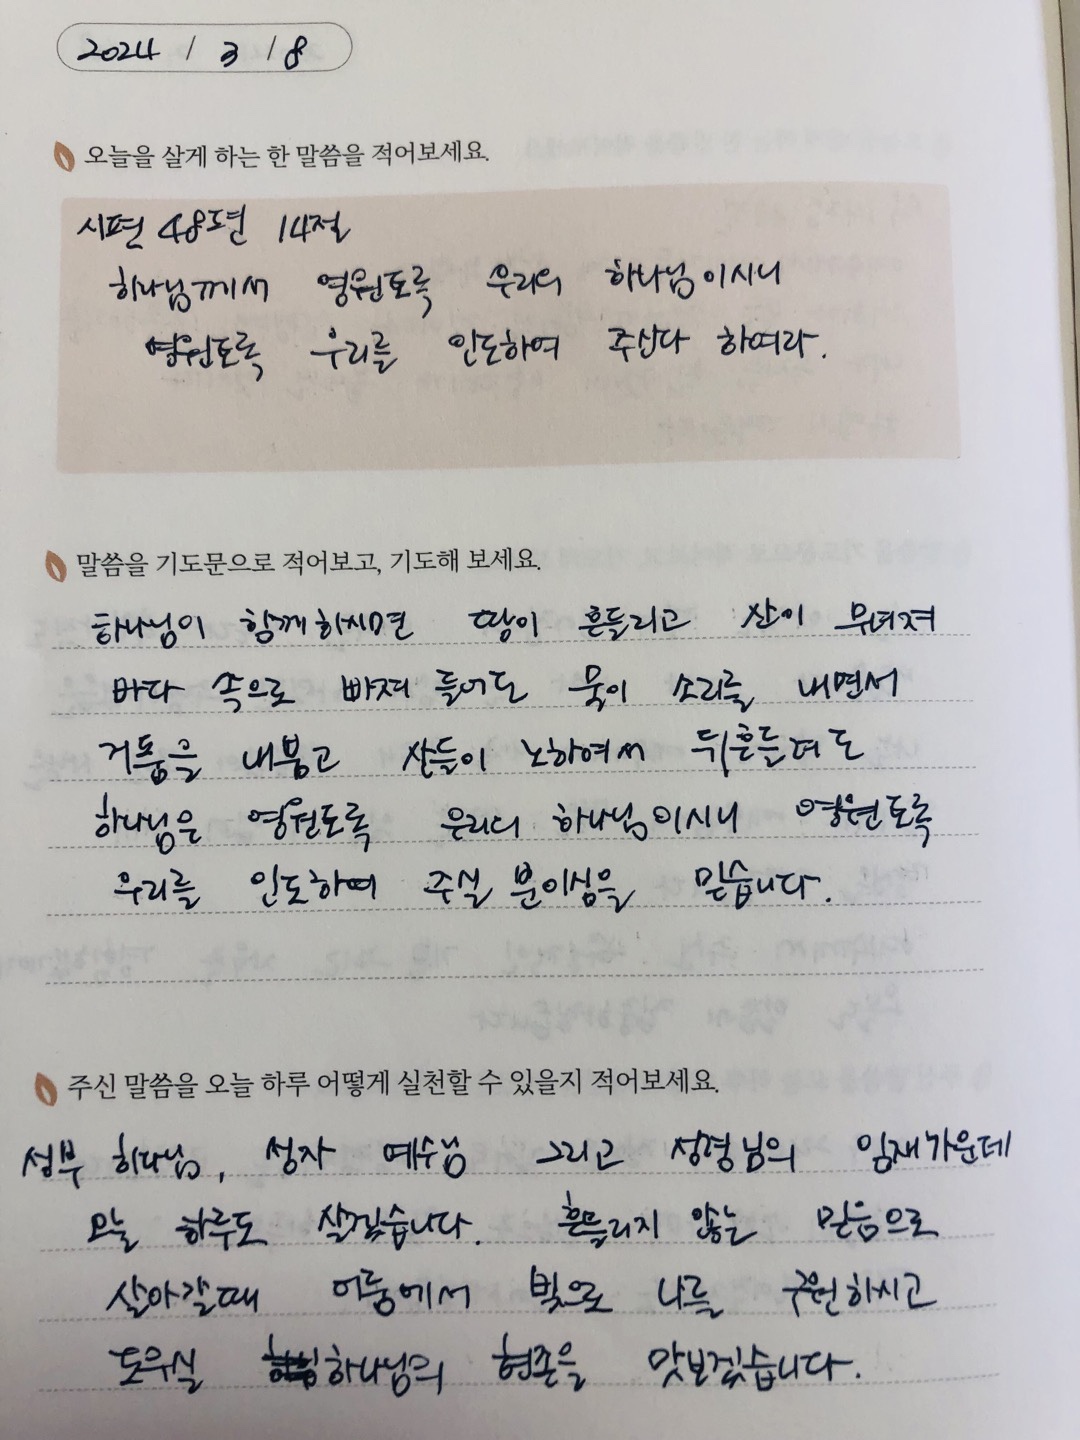 2024 / 3 / 8
오늘을 살게 하는 한 말씀을 적어보세요.
시편 48편 14절
하나님께서 영원토록 우리의 하나님이시니
영원토록 우리를 인도하여 주신다 하여라.
말씀을 기도문으로 적어보고, 기도해 보세요.
하나님이 함께하시면 땅이 흔들리고 산이 무너져
바다 속으로 빠져 들어도 물이 소리를 내면서
거품을 내뿜고 산들이 노하여서 뒤흔들려도
하나님은 영원토록 우리의 하나님이시니 영원토록
우리를 인도하여 주실 분이심을 믿습니다.
주신 말씀을 오늘 하루 어떻게 실천할 수 있을지 적어보세요.
성부 하나님, 성자 예수님 그리고 성령님의 임재가운데
오늘 하루도 살겠습니다. 흔들리지 않는 믿음으로
살아갈때 어둠에서 빛으로 나를 구원하시고
도우실 하나님의 현존을 맛보겠습니다.